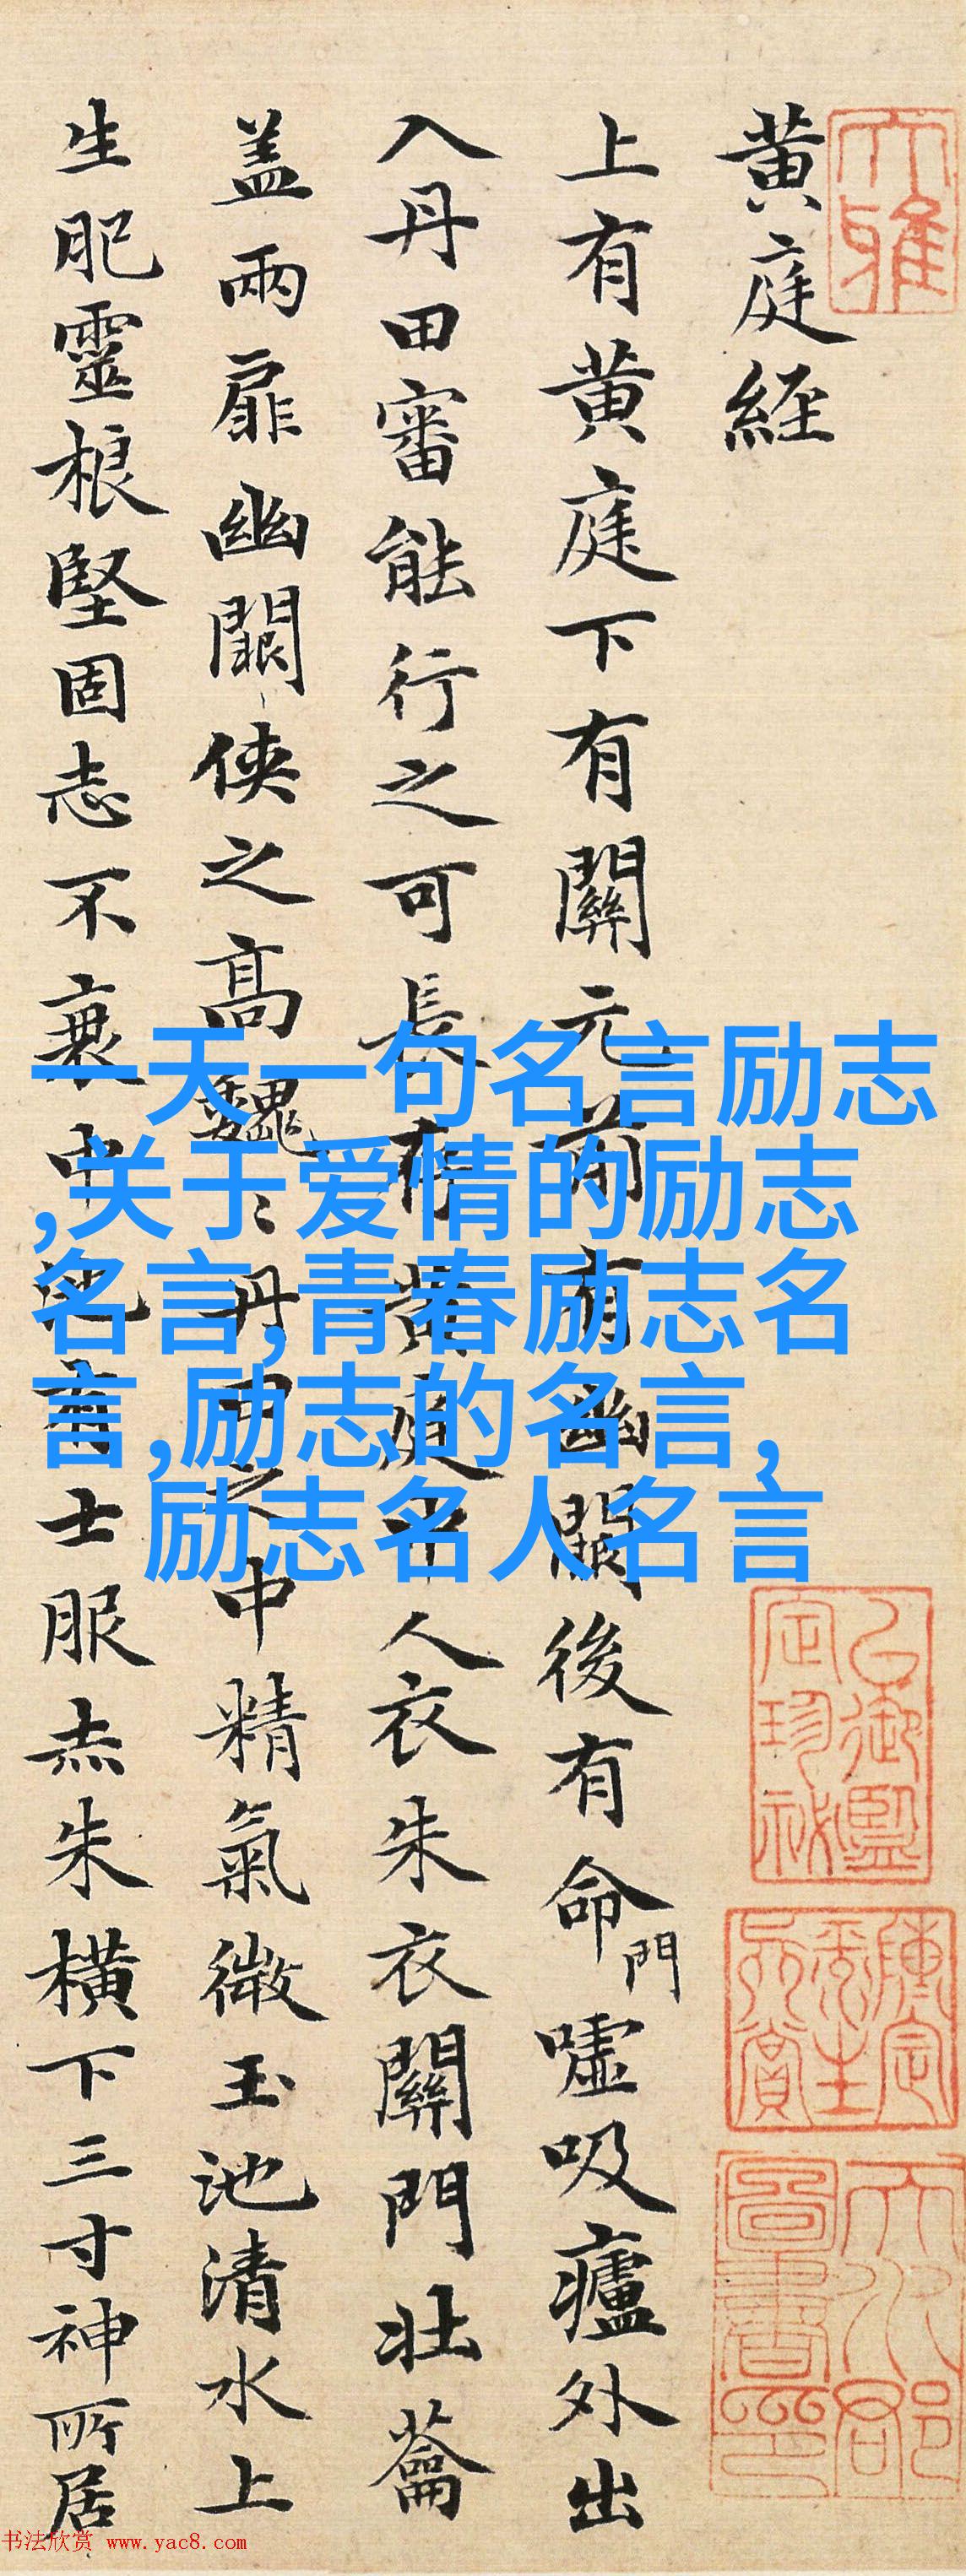 大雅
黄庭経
上有黄庭下有關元前有幽闕後有命門噓吸廬外出
入丹田審能行之可長存黄庭中人衣朱衣關門壮蘥
盖兩扉幽闕侠之高魏〻丹田之中精氣微玉池清水上
生肥靈根堅固志不衰中池有士服赤朱横下三寸神所居
一天一句名言励志
,关于爱情的励志
名言,青春励志名
言,励志的名言,
励志名人名言
书法欣赏 www.yac8.com